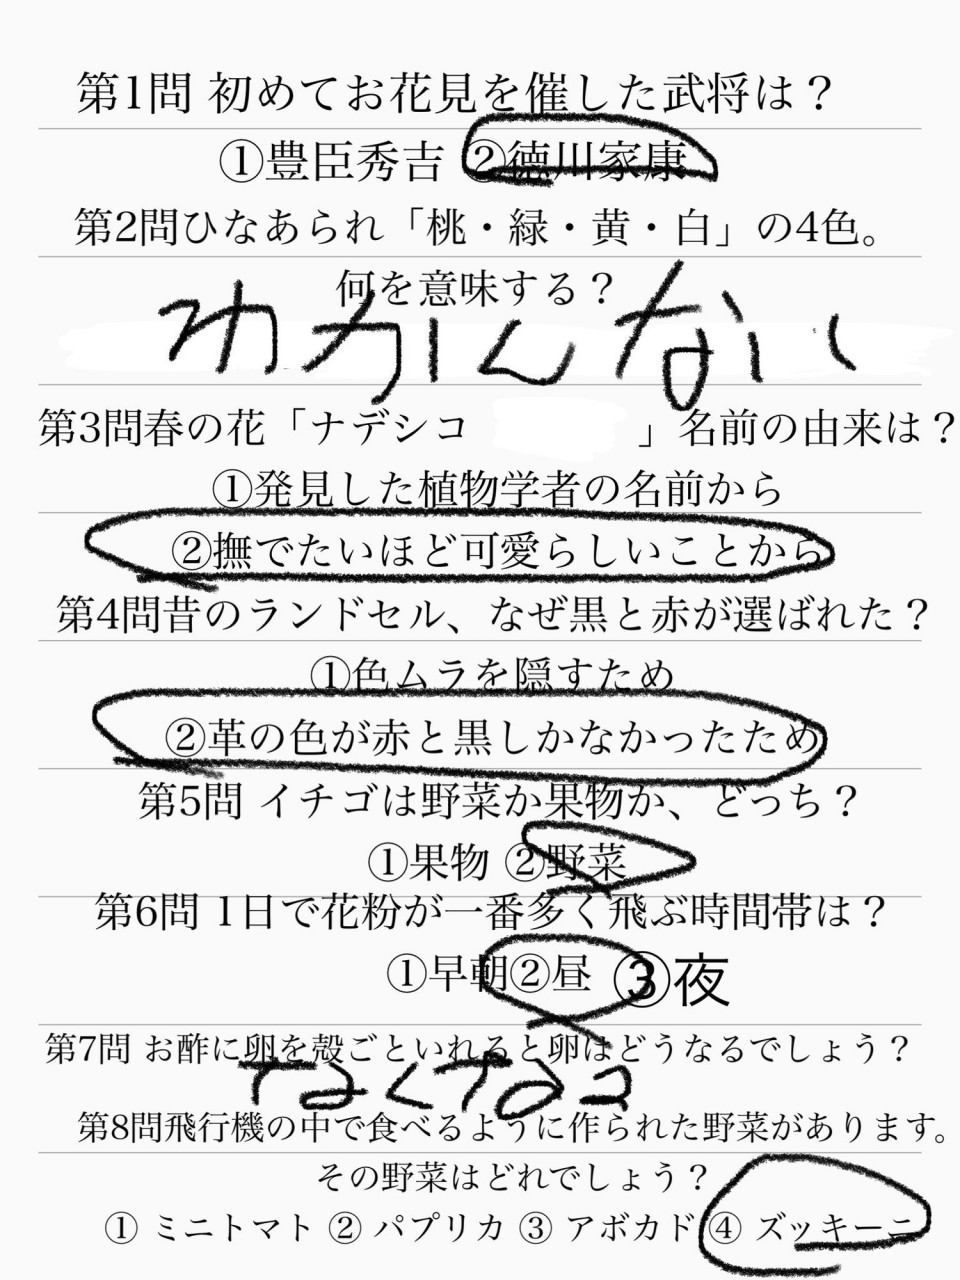 第1問 初めてお花見を催した武将は？
①豊臣秀吉 ②徳川家康
第2問ひなあられ「桃・緑・黄・白」の4色。
何を意味する？
わかんない
第3問春の花「ナデシコ 」名前の由来は？
①発見した植物学者の名前から
②撫でたいほど可愛らしいことから
第4問昔のランドセル、なぜ黒と赤が選ばれた？
①色ムラを隠すため
②革の色が赤と黒しかなかったため
第5問 イチゴは野菜か果物か、どっち？
①果物 ②野菜
第6問 1日で花粉が一番多く飛ぶ時間帯は？
①早朝②昼 ③夜
第7問 お酢に卵を殻ごといれると卵はどうなるでしょう？
なくなる
第8問飛行機の中で食べるように作られた野菜があります。
その野菜はどれでしょう？
① ミニトマト ② パプリカ ③ アボカド ④ ズッキーニ